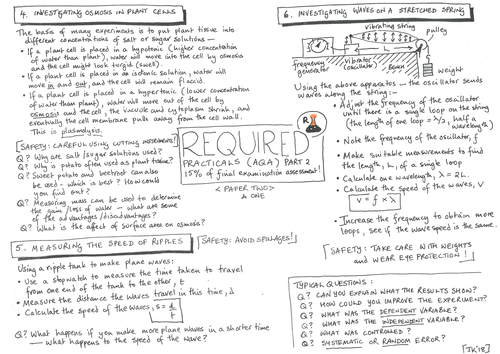 4. INVESTIGATING OSMOSIS IN PLANT CELLS
The basis of many experiments is to put plant tissue into
different concentrations of salt or sugar solutions —
• If a plant cell is placed in a hypotonic (higher concentration
of water than plant), water will move into the cell by osmosis
and the cell might look turgid (swell).
• If a plant cell is placed in an isotonic solution, water will
move in and out, and the cell will remain flaccid.
• If a plant cell is placed in a hypertonic (lower concentration
of water than plant), water will move out of the cell by
osmosis and the cell, the vacuole and cytoplasm shrink, and
eventually the cell membrane pulls away from the cell wall.
This is plasmolysis.
[SAFETY: CAREFUL USING CUTTING IMPLEMENTS!]
Q? Why are salt/sugar solutions used?
Q? Why is potato often used as plant tissue?
Q? Sweet potato and beetroot can also
be used - which is best? How could
you find out?
Q? Measuring mass can be used to determine
the gain/loss of water — what are some
of the advantages/disadvantages?
Q? What is the affect of surface area on osmosis?
5. MEASURING THE SPEED OF RIPPLES
[SAFETY: AVOID SPILLAGES!]
Using a ripple tank to make plane waves:
• Use a stopwatch to measure the time taken to travel
from one end of the tank to the other, t
• Measure the distance the waves travel in this time, d
• Calculate the speed of the waves, s = d/t
Q? What happens if you make more plane waves in a shorter time
— what happens to the speed of the wave?
REQUIRED
PRACTICALS (AQA) PART 2
15% of final examination assessment!
< PAPER TWO >
A ONE
R
6. INVESTIGATING WAVES ON A STRETCHED SPRING
vibrating string
pulley
frequency generator
vibrator (oscillator)
Bench
weight
Using the above apparatus — the oscillator sends
waves along the string:-
• Adjust the frequency of the oscillator
until there is a single loop on the string
(the length of one loop = λ/2, half a
wavelength)
• Note the frequency of the oscillator, f
• Make suitable measurements to find
the length, L, of a single loop
• Calculate one wavelength, λ = 2L.
• Calculate the speed of the waves, V
V = f × λ
• Increase the frequency to obtain more
loops, see if the wave speed is the same.
[SAFETY: TAKE CARE WITH WEIGHTS
and WEAR EYE PROTECTION!]
TYPICAL QUESTIONS:
Q? CAN YOU EXPLAIN WHAT THE RESULTS SHOW?
Q? HOW COULD YOU IMPROVE THE EXPERIMENT?
Q? WHAT WAS THE DEPENDENT VARIABLE?
Q? WHAT WAS THE INDEPENDENT VARIABLE?
Q? WHAT WAS CONTROLLED?
Q? SYSTEMATIC OR RANDOM ERROR?
[TK'18]